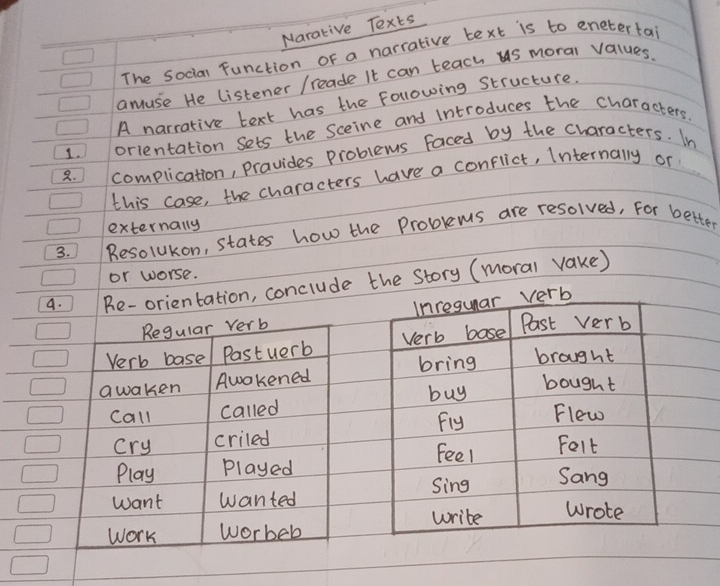 Narative Texts
The Social Function of a narrative text is to enetertai
amuse He listener /reade It can teach us moral values.
A narrative text has the Following Structure.
1. orientation Sets the Sceine and Introduces the characters.
2. complication, Prauides Problems Faced by the characters. In
this case, the characters have a conflict, Internally or
externally
3. Resolukon, states how the Problems are resolved, For better
or worse.
4. Re-orientation, conclude the Story (moral vake)
Regular verb
Verb base Past uerb
awaken Awakened
Call called
Cry criled
Play Played
Want Wanted
Work Worbeb
Inregular verb
Verb base Past verb
bring brought
buy bought
Fly Flew
Feel Felt
Sing Sang
Write Wrote